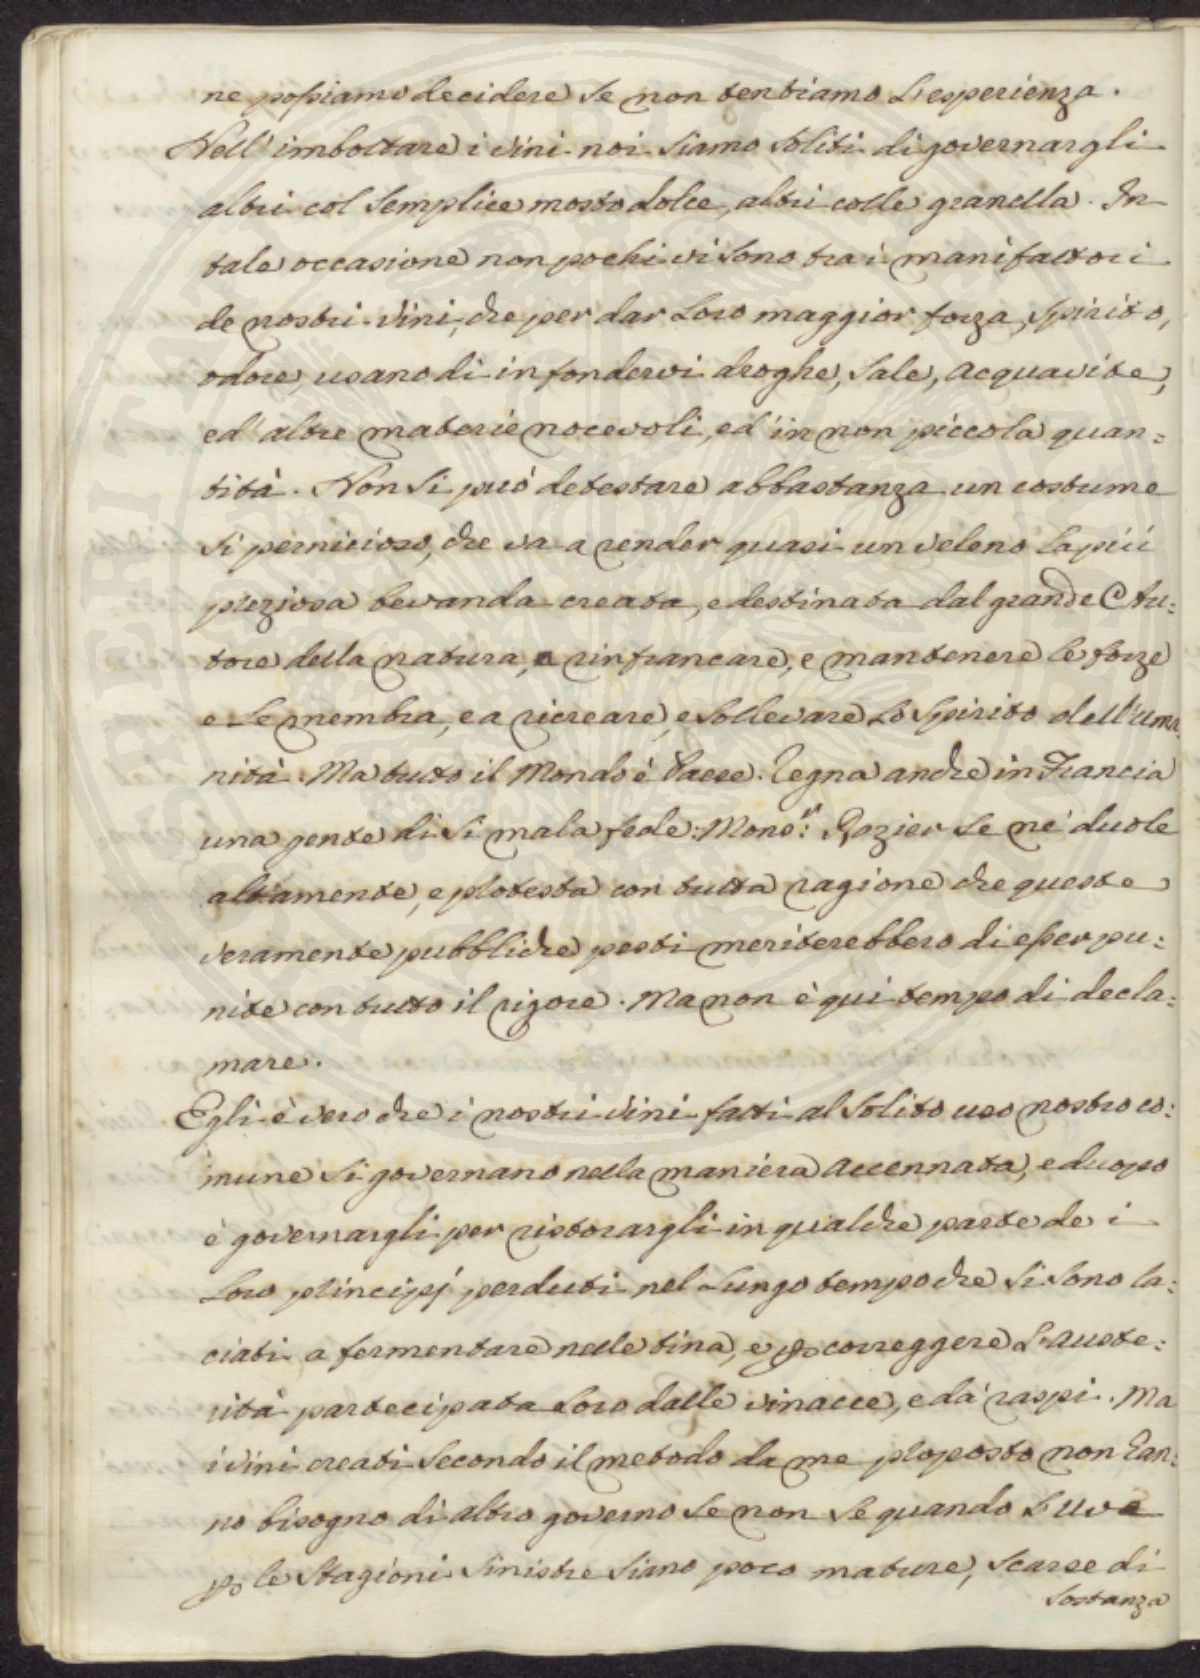 ne possiamo decidere se non tentiamo L'esperienza.
Nell'imbottare i vini noi siamo soliti di governargli
altri col semplice mosto dolce, altri colle granella. In
tale occasione non pochi vi sono tra i manifattori
de nostri vini, che per dar Loro maggior forza, spirito,
odore, usano di infondervi droghe, sale, acquavite,
ed altre materie nocevoli, ed in non piccola quan=
tità. Non si può detestare abbastanza un costume
sì pernicioso, che va a render quasi un veleno la più
preziosa bevanda creata, e destinata dal grande Au=
tore della natura, a rinfrancare, e mantenere le forze
e Le membra, e a ricreare, e sollevare Lo spirito dell'uma
nità. Ma tutto il Mondo è Paese. Regna anche in Francia
una gente di sì mala fede: Mons.r Rozier se ne duole
altamente, e protesta con tutta ragione che queste
veramente pubbliche pesti meriterebbero di esser pu=
nite con tutto il rigore. Ma non è qui tempo di decla=
mare.
Egli è vero che i nostri vini fatti al solito uso nostro co=
mune si governano nella maniera accennata, e duopo
è governargli per ristorargli in qualche parte de i
Loro principj perduti nel Lungo tempo che si sono la=
ciati a fermentare nelle tina, e p correggere L'auste=
rità partecipata Loro dalle vinacce, e dà raspi. Ma
i vini creati secondo il metodo da me proposto non han=
no bisogno di altro governo se non se quando L'uve
p le stagioni sinistre siano poco mature, scarse di
sostanza